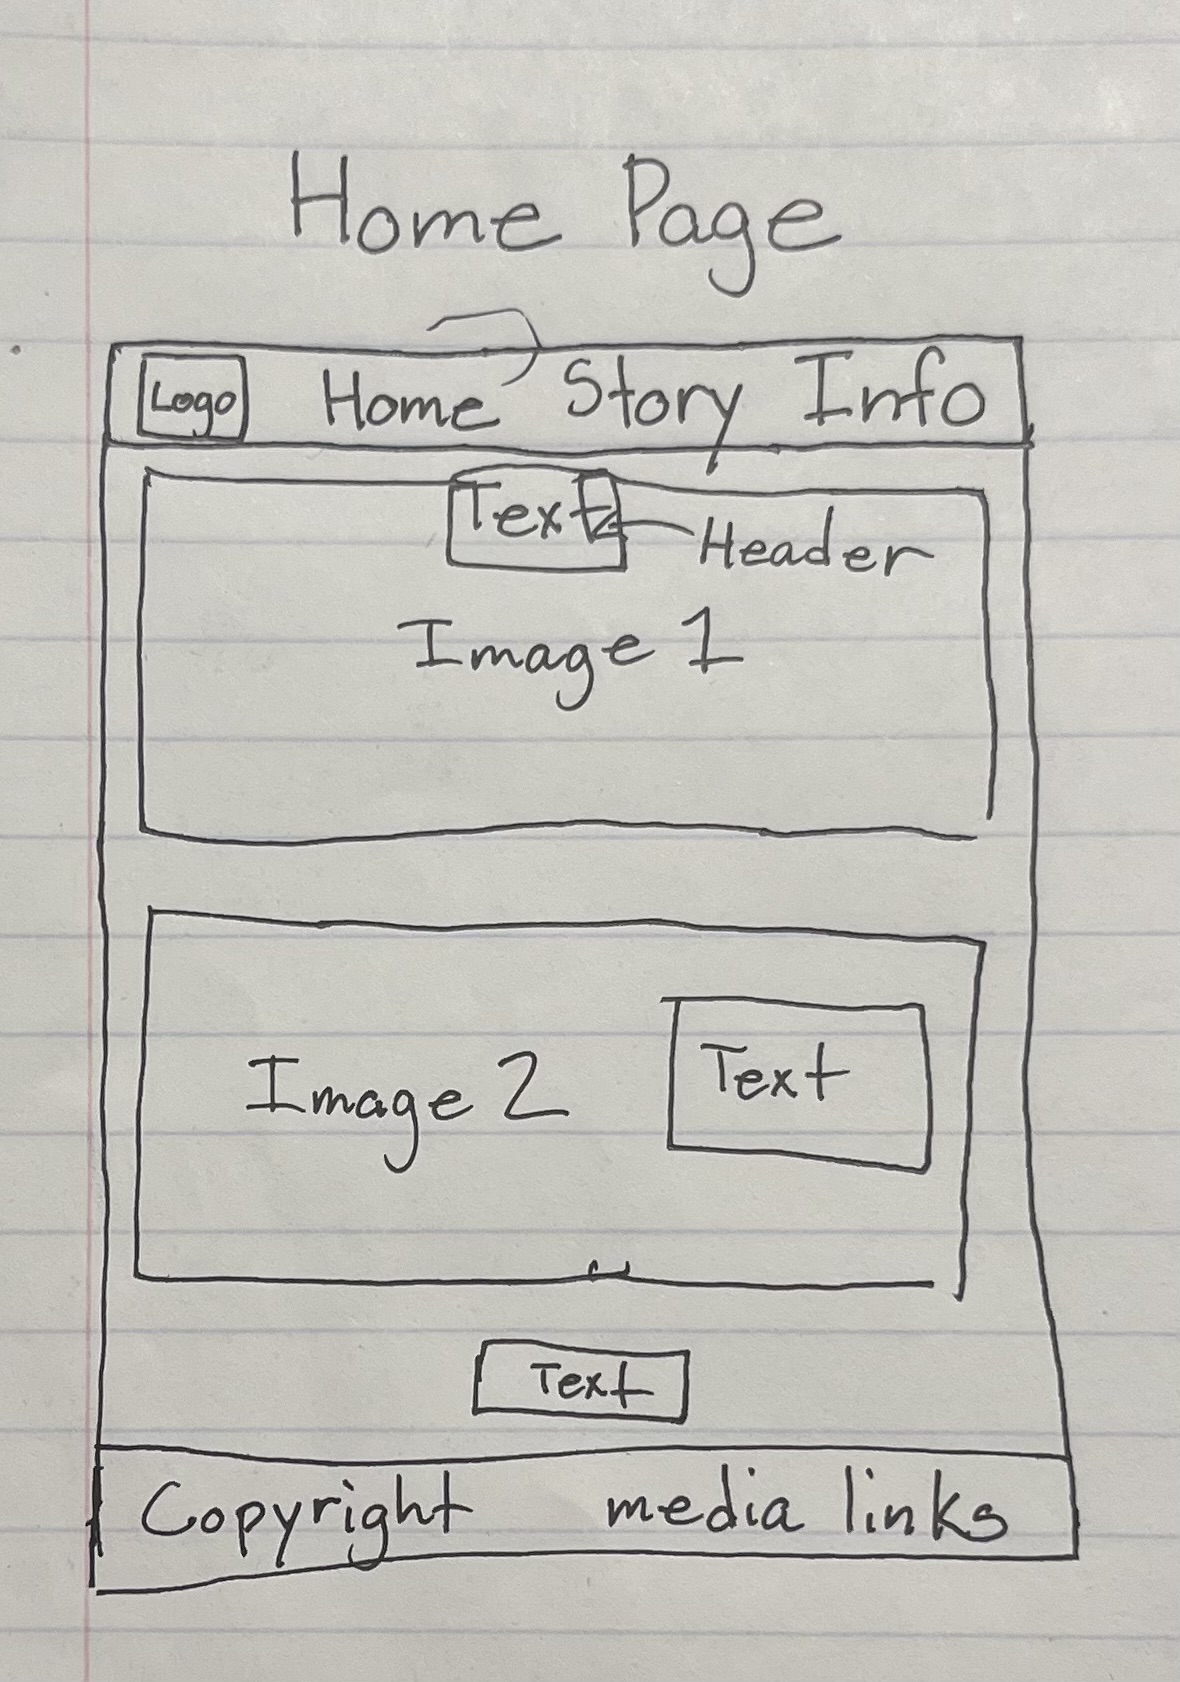 Home Page
Logo Home Story Info
Text
Header
Image 1
Image 2
Text
Text
Copyright media links